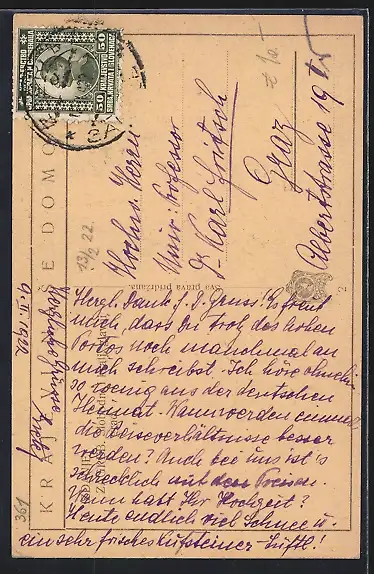 Hochw. Herrn
Univ: Professor
Dr. Karl Fritsch
Graz
Albertstrasse 19
13/2 22.
361
50
50
KRASNE DOMO
Sva prava pridržana.
2
Herzl. Dank f. d. Gruss! Es freut
mich, dass Du trotz des hohen
Portos noch manchmal an
mich schreibst. Ich höre ohnehin
so wenig aus der deutschen
Heimat. Wann werden einmal
die Reiseverhältnisse besser
werden? Auch bei uns ist's
schrecklich mit den Preisen.
Wann hatt Ihr Hochzeit?
Heute endlich viel Schnee u.
ein sehr frisches Kufsteiner-Lüftl!
Herzliche Grüsse
9. II. 1922.